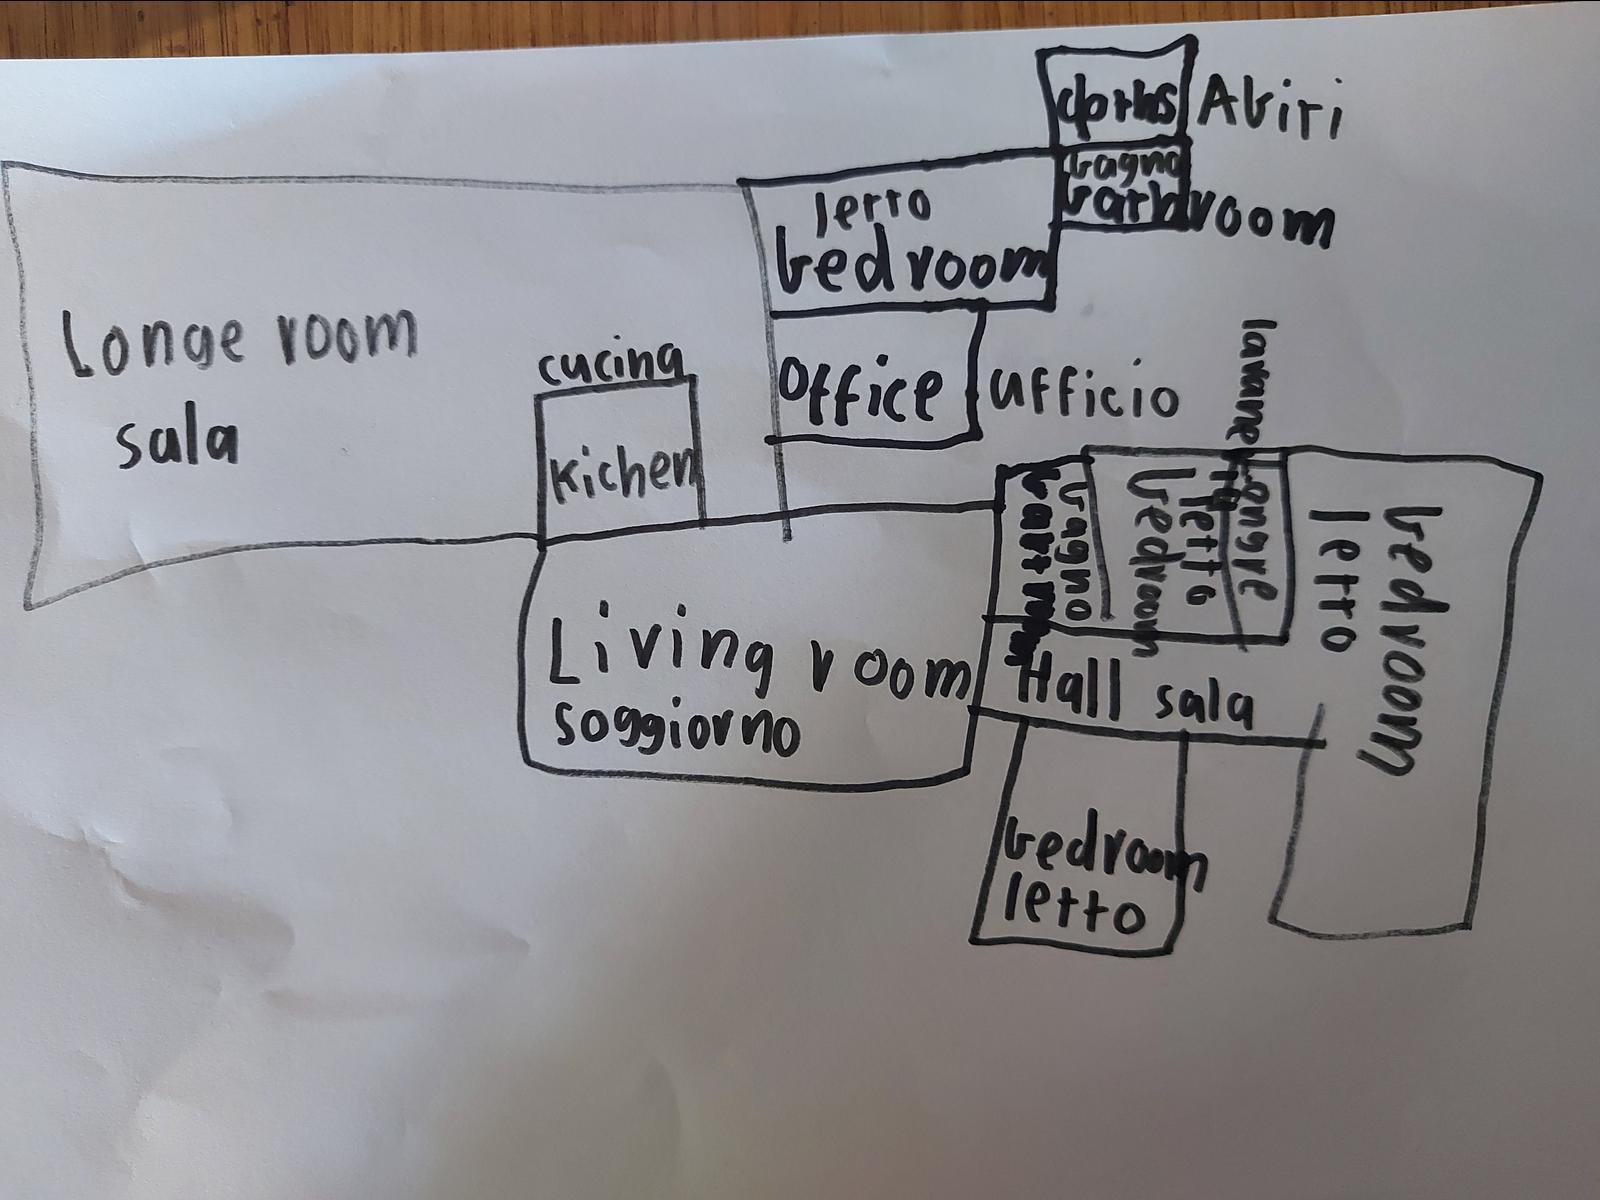 Abiri
bagno
bathroom
letto
bedroom
Longe room
sala
cucina
kichen
office
ufficio
bagno
letto
bedroom
letto
bedroom
Living room
soggiorno
Hall sala
bedroom
letto